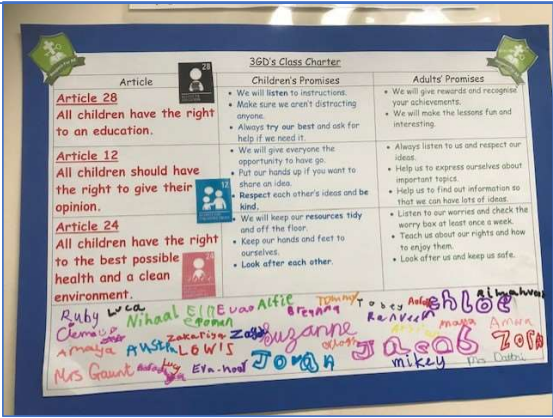 3GD's Class Charter
Article
28
Children's Promises
Adults' Promises
Article 28
All children have the right
to an education.
We will listen to instructions.
Make sure we aren't distracting
anyone.
Always try our best and ask for
help if we need it.
We will give rewards and recognise
your achievements.
We will make the lessons fun and
interesting.
Article 12
All children should have
the right to give their
opinion.
12
We will give everyone the
opportunity to have go.
Put our hands up if you want to
share an idea.
Respect each other's ideas and be
kind.
Always listen to us and respect our
ideas.
Help us to express ourselves about
important topics.
Help us to find out information so
that we can have lots of ideas.
Article 24
All children have the right
to the best possible
health and a clean
environment.
24
We will keep our resources tidy
and off the floor.
Keep our hands and feet to
ourselves.
Look after each other.
Listen to our worries and check the
worry box at least once a week.
Teach us about our rights and how
to enjoy them.
Look after us and keep us safe.
Ruby Luca Nihaal Evan Alfie Breyona Tommy Tobey Chloe
Raaveen
Zakariya Suzanne Maya Amna
Amaya Austin Lewis Jacob Zara
Mrs Gaunt Lucy Eva-noor Jovan mikey